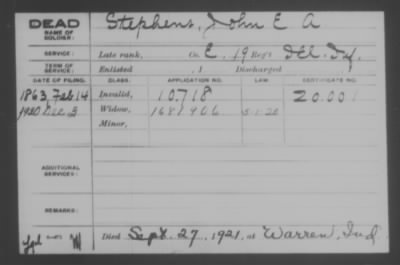 DEAD
NAME OF SOLDIER:
Stephens, John E A
SERVICE:
Late rank, Co. E, 19 Reg't Ill. Inf.
TERM OF SERVICE:
Enlisted , 1 Discharged
DATE OF FILING. CLASS. APPLICATION NO. LAW. CERTIFICATE NO.
1863, Feb 14 Invalid, 10.718 20.001
1920 Dec 3 Widow, 1681906 5-1-20
Minor,
ADDITIONAL SERVICES:
REMARKS:
Died Sept. 27, 1921, at Warren, Ind.